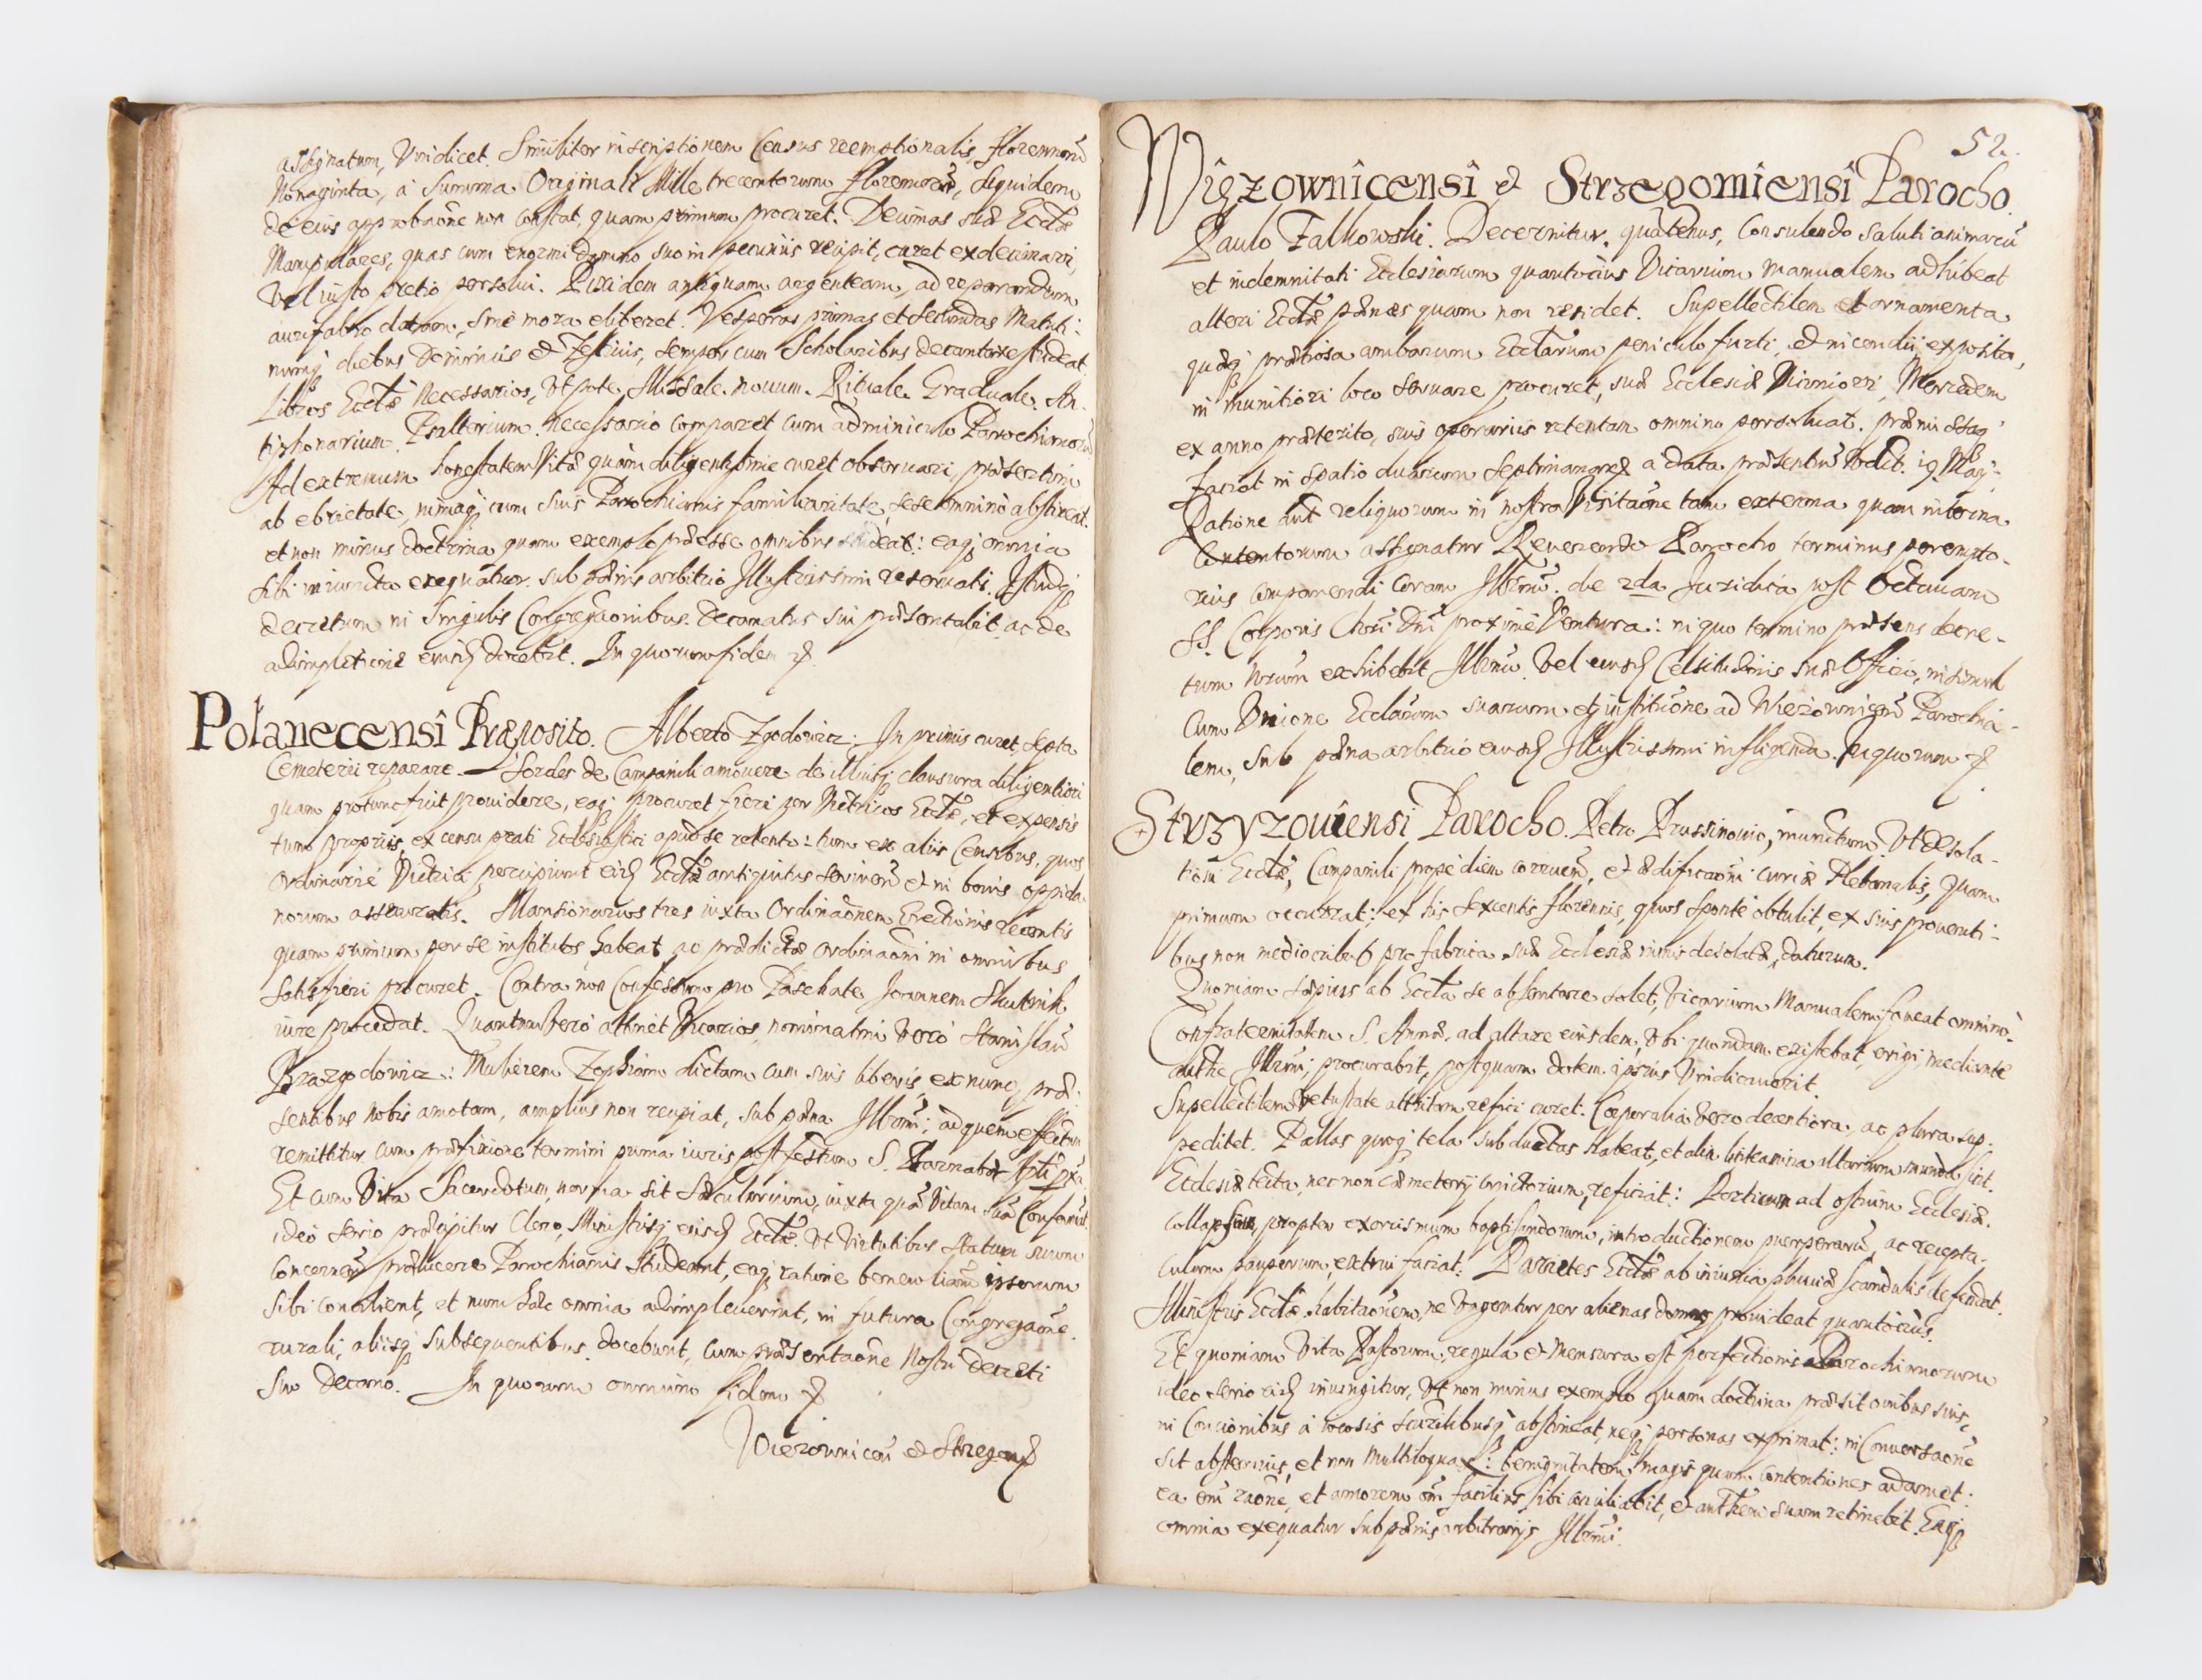 assignatum, Vindicet. Similiter inscriptionem Census reemptionalis, florenorũ
Nonaginta, à Summa Originali Mille trecentorum Florenorũ, siquidem
de eius approbaõne non constat, quam primum procuret. Decimas suæ Ecctæ
Manipulares, quas cum enormi damno suo in pecuniis recipit, curet exdecimari,
Vel iusto pretio persolui. Pixidem antiquam argenteam, ad reparandum
aurifabro datam, sine mora eliberet. Vesperas primas et secundas Matuti-
numq; diebus Dominicis & Festiuis, semper cum Scholaribus decantare studeat.
Libros Ecctæ Necessarios, Vtpote, Missale nouum. Rituale. Graduale. An-
tiphonarium. Psalterium. necessario comparet cum adminiculo Parochianorũ
Ad extremum honestatem Vitæ quàm diligentissime curet obseruari, præsertim
ab ebrietate, nimiaq; cum suis Parochianis familiaritate, sese omninò abstineat.
et non minus doctrina quam exemplo præesse omnibus studeat: eaq; omnia
sibi iniuncta exequatur. sub pœnis arbitrio Illustrissimi reseruatis. Istudq;
decretum in singulis Congregaõnibus. Decanatus sui præsentabit ac de
adimpletione eiusd. docebit. In quorum fidem &.
Polanecensi Præposito. Alberto Zgodowicz: In primis curet septa
Cemeterii reparare. Sordes de Campanili amouere de illiusq; clausura diligentiori
quam protunc fuit prouidere, eaq; procuret fieri per Vitricos Ecctæ, et expensis
tum propriis, ex censu prati Ecclesiastici apud se retento: tum ex aliis Censibus, quos
Ordinariè Vitrici percipiunt eid. Ecctæ antiquitus seruien. & in bonis oppida-
norum assecuratis. Mansionarios tres iuxta Ordinaõnem Erectionis recentis
quam primum per se institutos habeat ac prædictæ ordinaõni in omnibus
satisfieri procuret. Contra non Confessum pro Paschate Joannem Skutnik
iure procedat. Quantum Verò attinet Vicarios, nominatim Verò Stanislaũ
Brazgodowicz: Mulierem Zophiam dictam cum suis liberis, ex nunc, præ-
sentibus nobis amotam, amplius non recipiat, sub pœna Illrmi; ad quem effectum
remittitur cum præfixione termini prima iuris post festum S. Barnabæ Apti pxã
Et cum Vita Sacerdotum norma sit Sæcularium, iuxta quã Vitam suã Conforment
ideo serio præcipitur Clero, Ministrisq; eiusd. Ecctæ. Vt Virtutibus statum suum
concernen. prælucere Parochianis studeant, eaq; ratione beneuoliam ipsorum
sibi concilient, et num hæc omnia adimpleuerint, in futura Congregaõne
rurali, aliisq; subsequentibus. docebunt, cum præsentaõne Nostri decreti
suo Decano. In quorum omnium fidem &
Wiezownicen & Strzegom
52.
Więzownicensi & Strzegomiensi Parocho.
Paulo Falkowski. Decernitur. quatenus, Consulendo saluti animarũ
et indemnitati Ecclesiarum quantocius Vicarium manualem adhibeat
alteri Ecctæ penes quam non residet. Supellectilem et ornamenta
quæq; prætiosa ambarum Ecctarum periculo furti, & incendii exposita,
in munitiori loco seruare procuret, suæ Ecclesiæ Viciniori, Mercedem
ex anno præterito, suis operariis retentam omnino persoluat. præmissaq;
faciat in spatio duarum septimanarũ à data præsentiũ Vidlt. 19. Maij.
Ratione aut reliquorum in nostra Visitaõne tam externa quam interna
Contentorum assignatur Reuerendo Parocho terminus perempto-
rius comparendi coram Illrmo. die 2da Juridica post Octauam
SS. Corporis Christi Dni proximè Ventura: in quo termino præsens decre-
tum Vrũm exhibebit Illrmo. Vel eiusd. Celsitudinis suæ Officio, nisimul
Cum Vnione Ecclarum suarum et institutione ad Wiezownicen. Parochia-
lem, sub pœna arbitrio eiusd. Illustrissimi infligenda. In quorum &
Strzyzouiensi Parocho. Petro Prussinouio, iniunctum. Vt desola-
tiõni Ecctæ, Campanili propediem corruen., & ædificaõni curiæ Plebanalis, quam
primum occurrat: ex his sexcentis florenis, quos sponte obtulit, ex suis prouenti-
bus non mediocribus pro fabrica suæ Ecclesiæ nimis desolatæ, daturum.
Quoniam sæpius ab Eccta se absentare solet, Vicarium Manualem foueat omninò.
Confraternitatem S. Annæ, ad altare eiusdem, Vbi quondam existebat, erigi, mediante
authe Illrmi, procurabit, postquam dotem ipsius Vindicauerit.
Supellectilem Vetustate attritam refici curet. Corporalia Vero decentiora, ac plura sup-
peditet. Pallas quoq; tela subductas habeat, et alia linteamina altarium munda sint.
Ecclesiæ tecta, nec non Cæmeterij Coniectorium, reficiat: Porticum ad ostium Ecclesiæ.
collapsum, propter exorcismum baptisandorum, introductionem puerperarũ, ac recepta-
culum pauperum, extrui faciat: Parietes Ecctæ ab iniuria pluuiæ scandulis defendat.
Ministris Ecctæ habitaõnem, ne Vagentur per alienas domos prouideat quantociùs.
Et quoniam Vita Pastorum, regula & Mensura est perfectionis Parochianorum
ideo serio eid. iniungitur, Vt non minus exemplo quam doctrina præsit omnibus suis,
in Concionibus à iocosis scurilibusq; abstineat, neq; personas exprimat: in Conuersaõne
sit abstemius, et non Multiloquax: benignitatem magis quam contentiones adamet:
ea em̃ raõne, et amorem om̃. facilius sibi conciliabit, & authem suam retinebit. Eaq;
omnia exequatur sub pœnis arbitrarijs Illrmi.